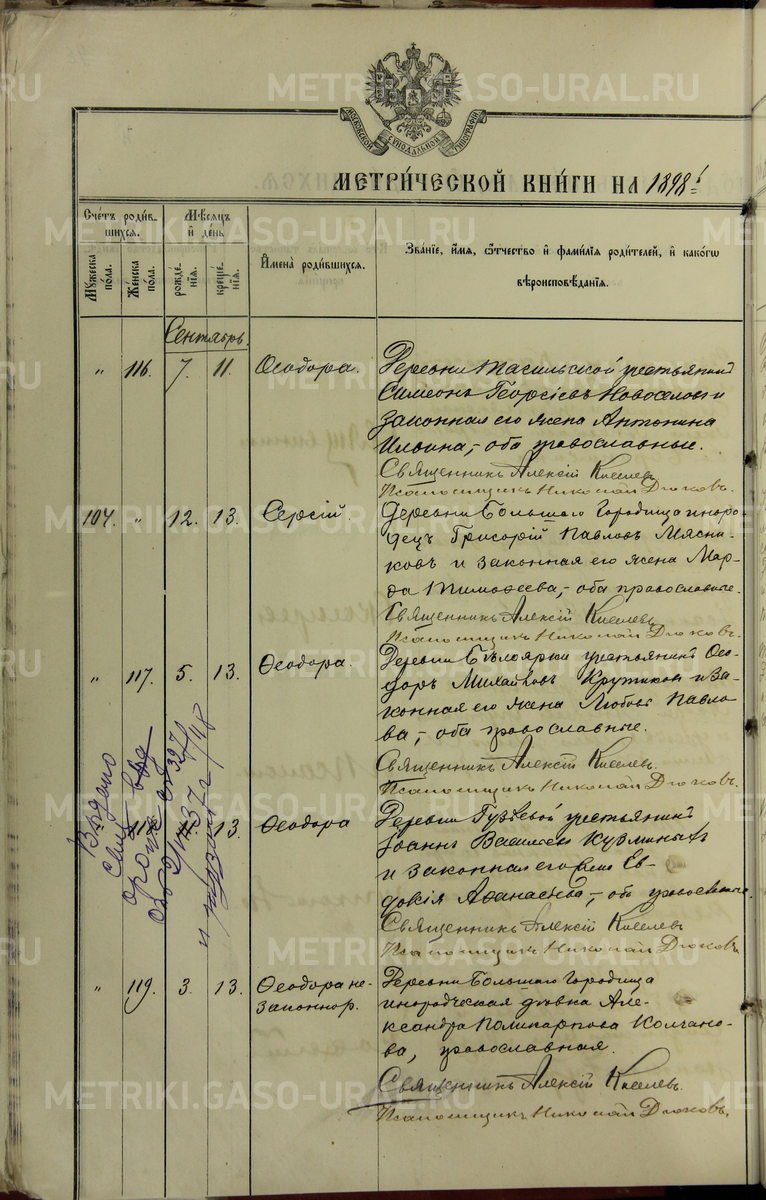 METRIKI.GASO-URAL.RU
МОСКОВСКОЙ СѴНОДАЛЬНОЙ ТИПОГРАФІИ
МЕТРИ́ЧЕСКОЙ КНИ́ГИ НА 1898 г.
Сче́тъ роди́в-шихся.
Му́жеска по́ла.
Же́нска по́ла.
Мѣ́сяцъ и҆ де́нь.
рожде́-нія.
креще́-нія.
И҆мена̀ роди́вшихся.
Зва́ніе, и҆́мя, ѻ҆́тчество и҆ фами́лія роди́телей, и҆ како́гѡ
вѣроисповѣ́данія.
Сентябрь.
" 116. 7. 11. Ѳеодора.
Деревни Тагильской крестьянинъ
Симеонъ Георгіевъ Новоселовъ и
законная его жена Антонина
Ильина, - оба православные.
Священникъ Алексій Киселевъ
Псаломщикъ Николай Дюковъ.
104. " 12. 13. Сергій.
Деревни Большаго Городища иноро-
децъ Григорій Павловъ Мясни-
ковъ и законная его жена Мар-
ѳа Тимоѳеева, - оба православные.
Священникъ Алексій Киселевъ
Псаломщикъ Николай Дюковъ.
" 117. 5. 13. Ѳеодора.
Деревни Бѣлоярки крестьянинъ Ѳео-
доръ Михайловъ и за-
конная его жена Любовь Павло-
ва, - оба православные.
Священникъ Алексій Киселевъ.
Псаломщикъ Николай Дюковъ.
13. Ѳеодора
Деревни Гузѣевой крестьянинъ
Іоаннъ Васильевъ Кузминыхъ
и законная его жена Ев-
докія Аѳанасьева, - оба православные.
Священникъ Алексій Киселевъ
Псаломщикъ Николай Дюковъ.
Выдано
" 119. 3. 13. Ѳеодора не-
законнор.
Деревни Большаго Городища
инородческая дѣвка Але-
ксандра Поликарпова Колчано-
ва, православная.
Священникъ Алексій Киселевъ.
Псаломщикъ Николай Дюковъ.